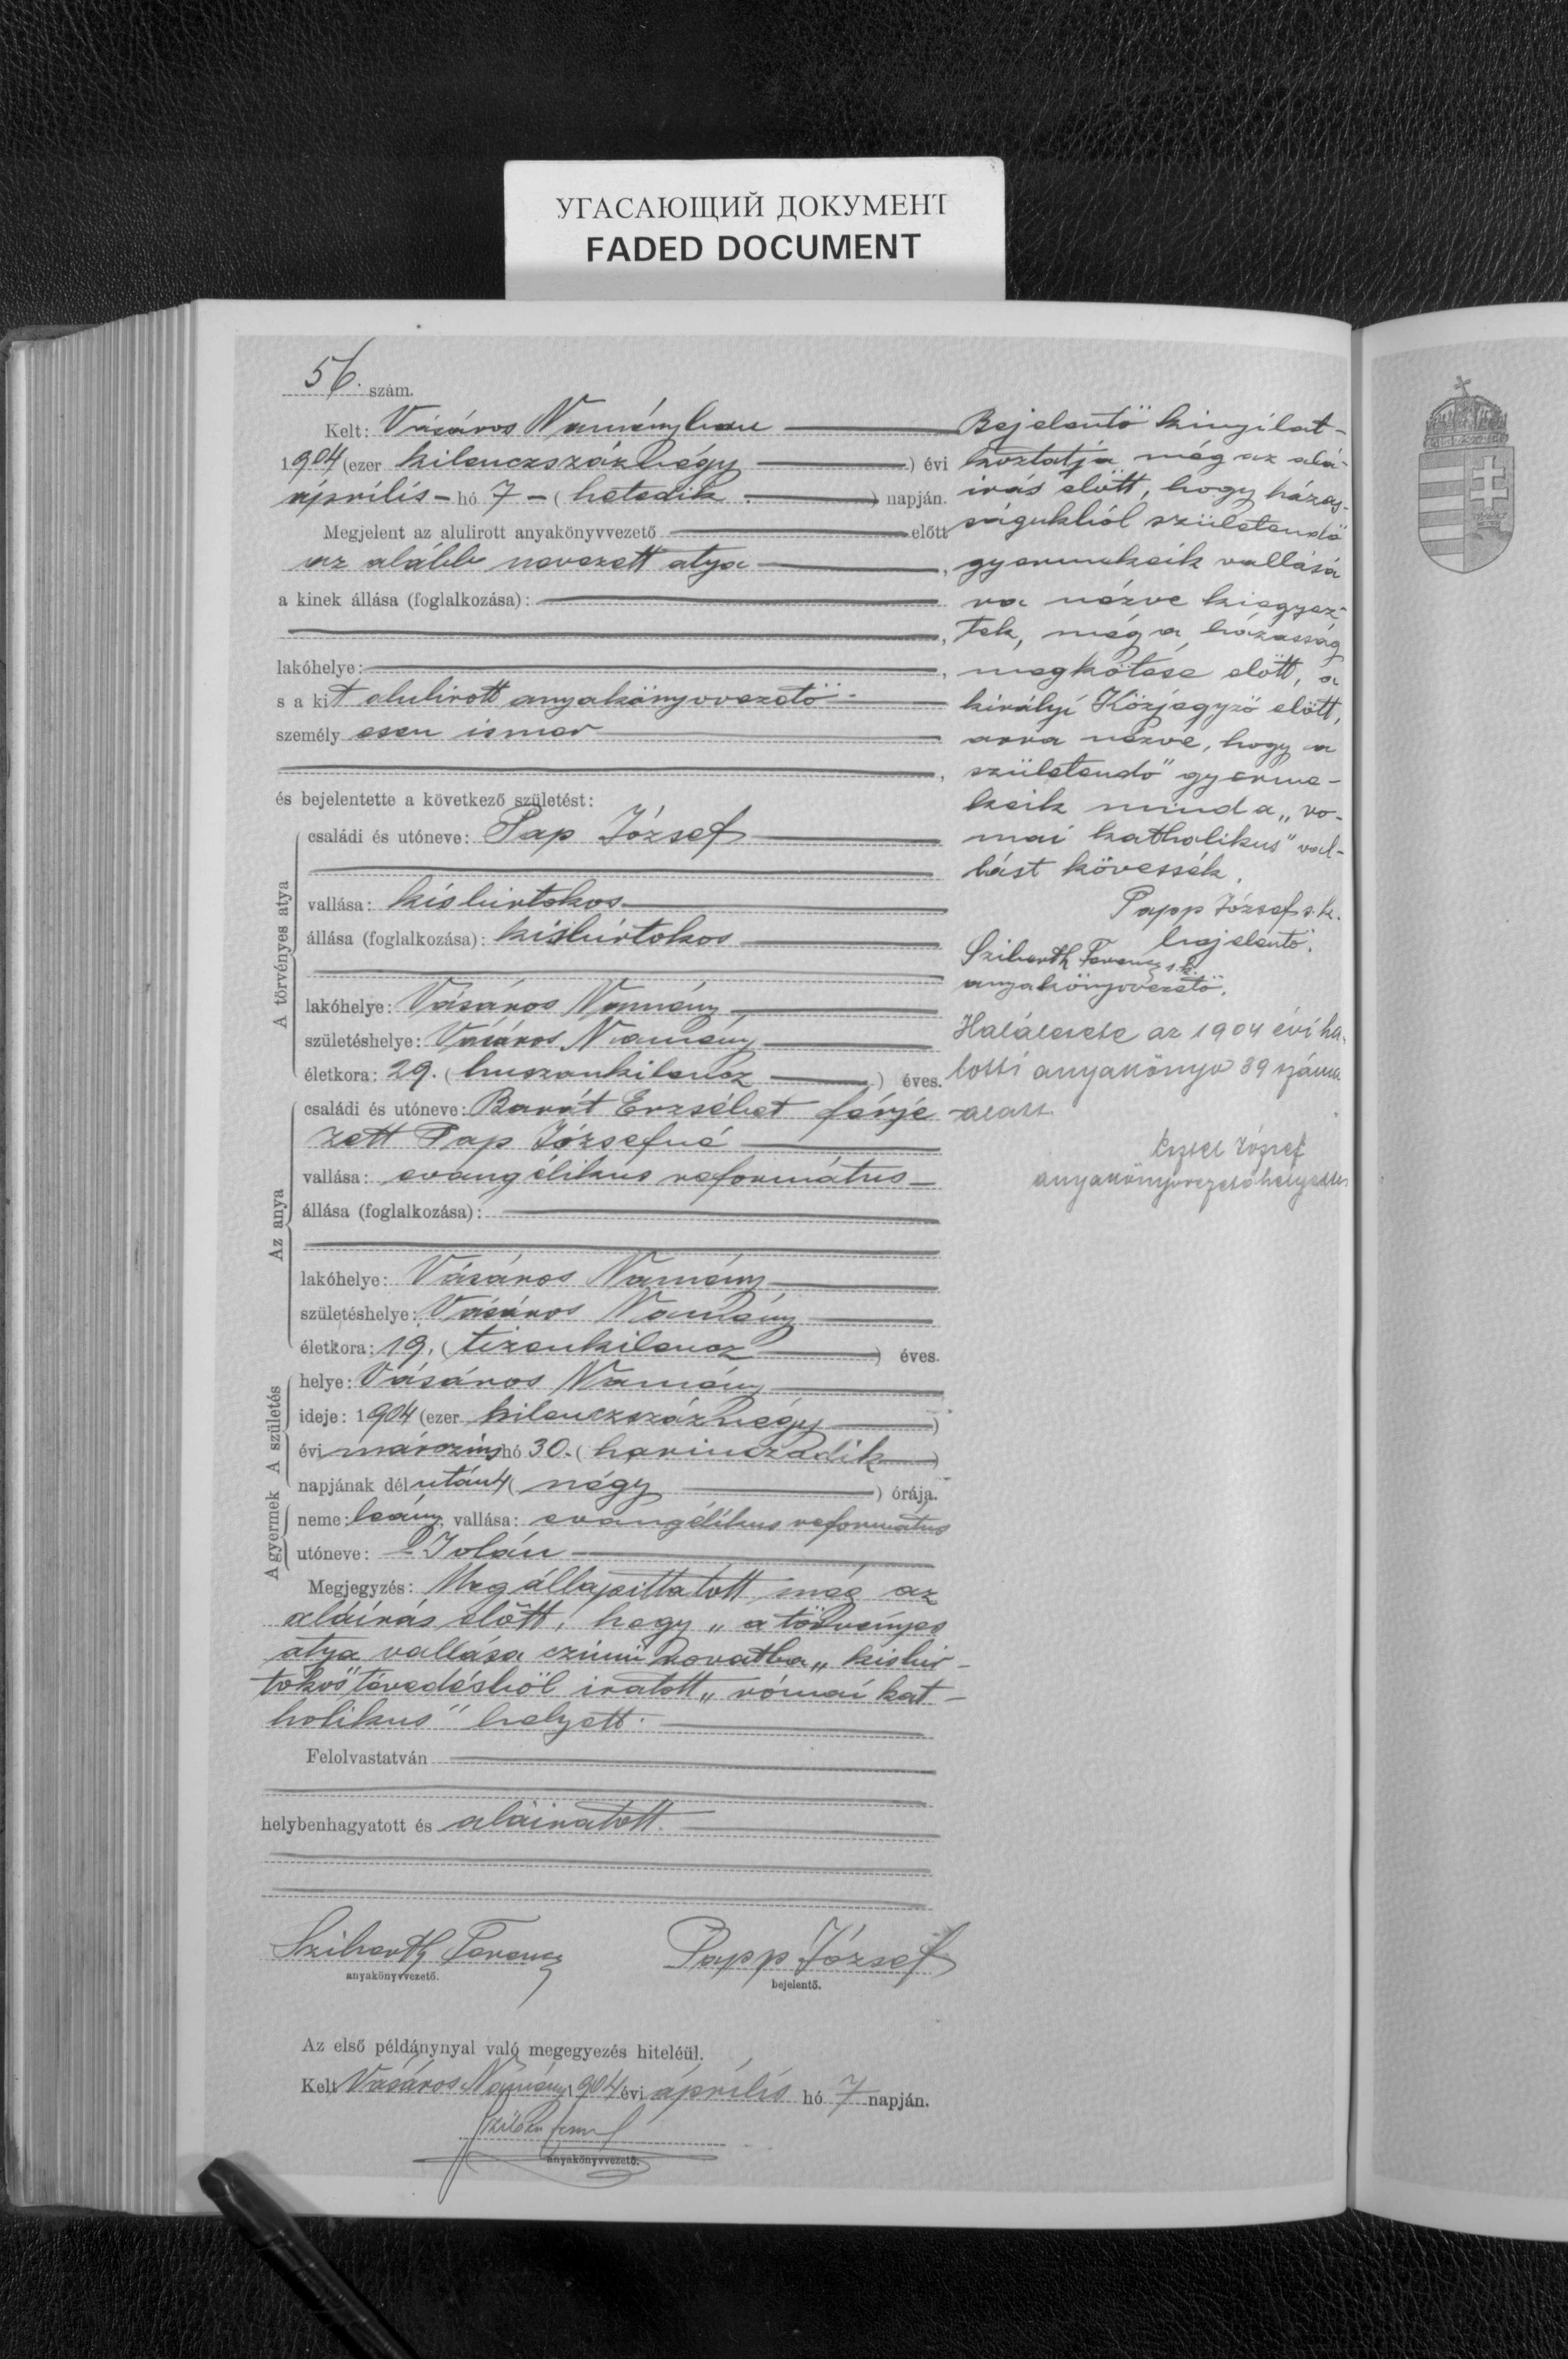 УГАСАЮЩИЙ ДОКУМЕНТ
FADED DOCUMENT
56. szám.
Kelt: Vásáros Naményban
1904 (ezer kilenczszáznégy) évi
április hó 7 (hetedik) napján.
Megjelent az alulirott anyakönyvvezető előtt
az alább nevezett atya,
a kinek állása (foglalkozása):
lakóhelye:
s a kit alulirott anyakönyvvezető
személyesen ismer
és bejelentette a következő születést:
A törvényes atya
családi és utóneve: Pap József
vallása: kisbirtokos
állása (foglalkozása): kisbirtokos
lakóhelye: Vásáros Namény
születéshelye: Vásáros Namény
életkora: 29. (huszonkilencz) éves.
Az anya
családi és utóneve: Barát Erzsébet férje
zett Pap Józsefné
vallása: evangélikus református
állása (foglalkozása):
lakóhelye: Vásáros Namény
születéshelye: Vásáros Namény
életkora: 19. (tizenkilencz) éves.
A születés
helye: Vásáros Namény
ideje: 1904 (ezer kilenczszáznégy)
évi márczius hó 30. (harminczadik)
napjának délután 4 (négy) órája.
A gyermek
neme: leány, vallása: evangélikus református
utóneve: Jolán
Megjegyzés: Megállapittatott még az
aláírás előtt, hogy „a törvényes
atya vallása czimü rovatba „kisbir-
tokos" tévedésböl iratott „római kat-
holikus" helyett.
Felolvastatván
helybenhagyatott és aláiratott.
Sziberth Ferencz
anyakönyvvezető.
Papp József
bejelentő.
Az első példánynyal való megegyezés hiteléül.
Kelt Vásáros Namény 1904 évi április hó 7 napján.
anyakönyvvezető.
Bejelentö kinyilat-
koztatja még az alá-
irás előtt, hogy házas-
ságukból születendö
gyermekeik vallásá
ra nézve kiegyez-
tek, még a házasság
megkötése előtt, a
királyi Közjegyzö előtt,
arra nézve, hogy a
születendö gyerme-
keik mind a „ro-
mai katholikus" val-
lást kövessék.
Papp József s.k.
bejelentö.
Sziberth Ferencz s.k.
anyakönyvvezetö.
Halálesete az 1904 évi ha-
lotti anyakönyv 39 száma
alatt.
József
anyakönyvvezető helyettes